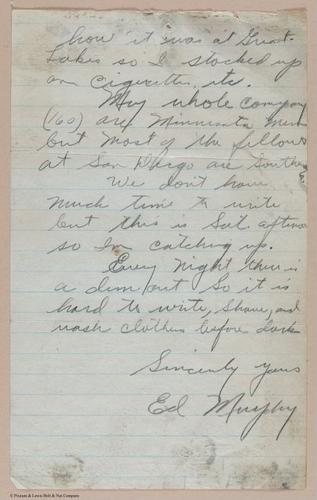 how it was at Great
Lakes so I stocked up
on cigarettes, etc.
My whole company
(160) are Minnesota men
but most of the fellows
at San Diego are Southern
We don't have
much time to write
but this is Sat. afternoon
so I'm catching up.
Every night there is
a dim out so it is
hard to write, shave, and
wash clothes before dark
Sincerely yours
Ed Murphy
© Pioneer & Lewis Bolt & Nut Company